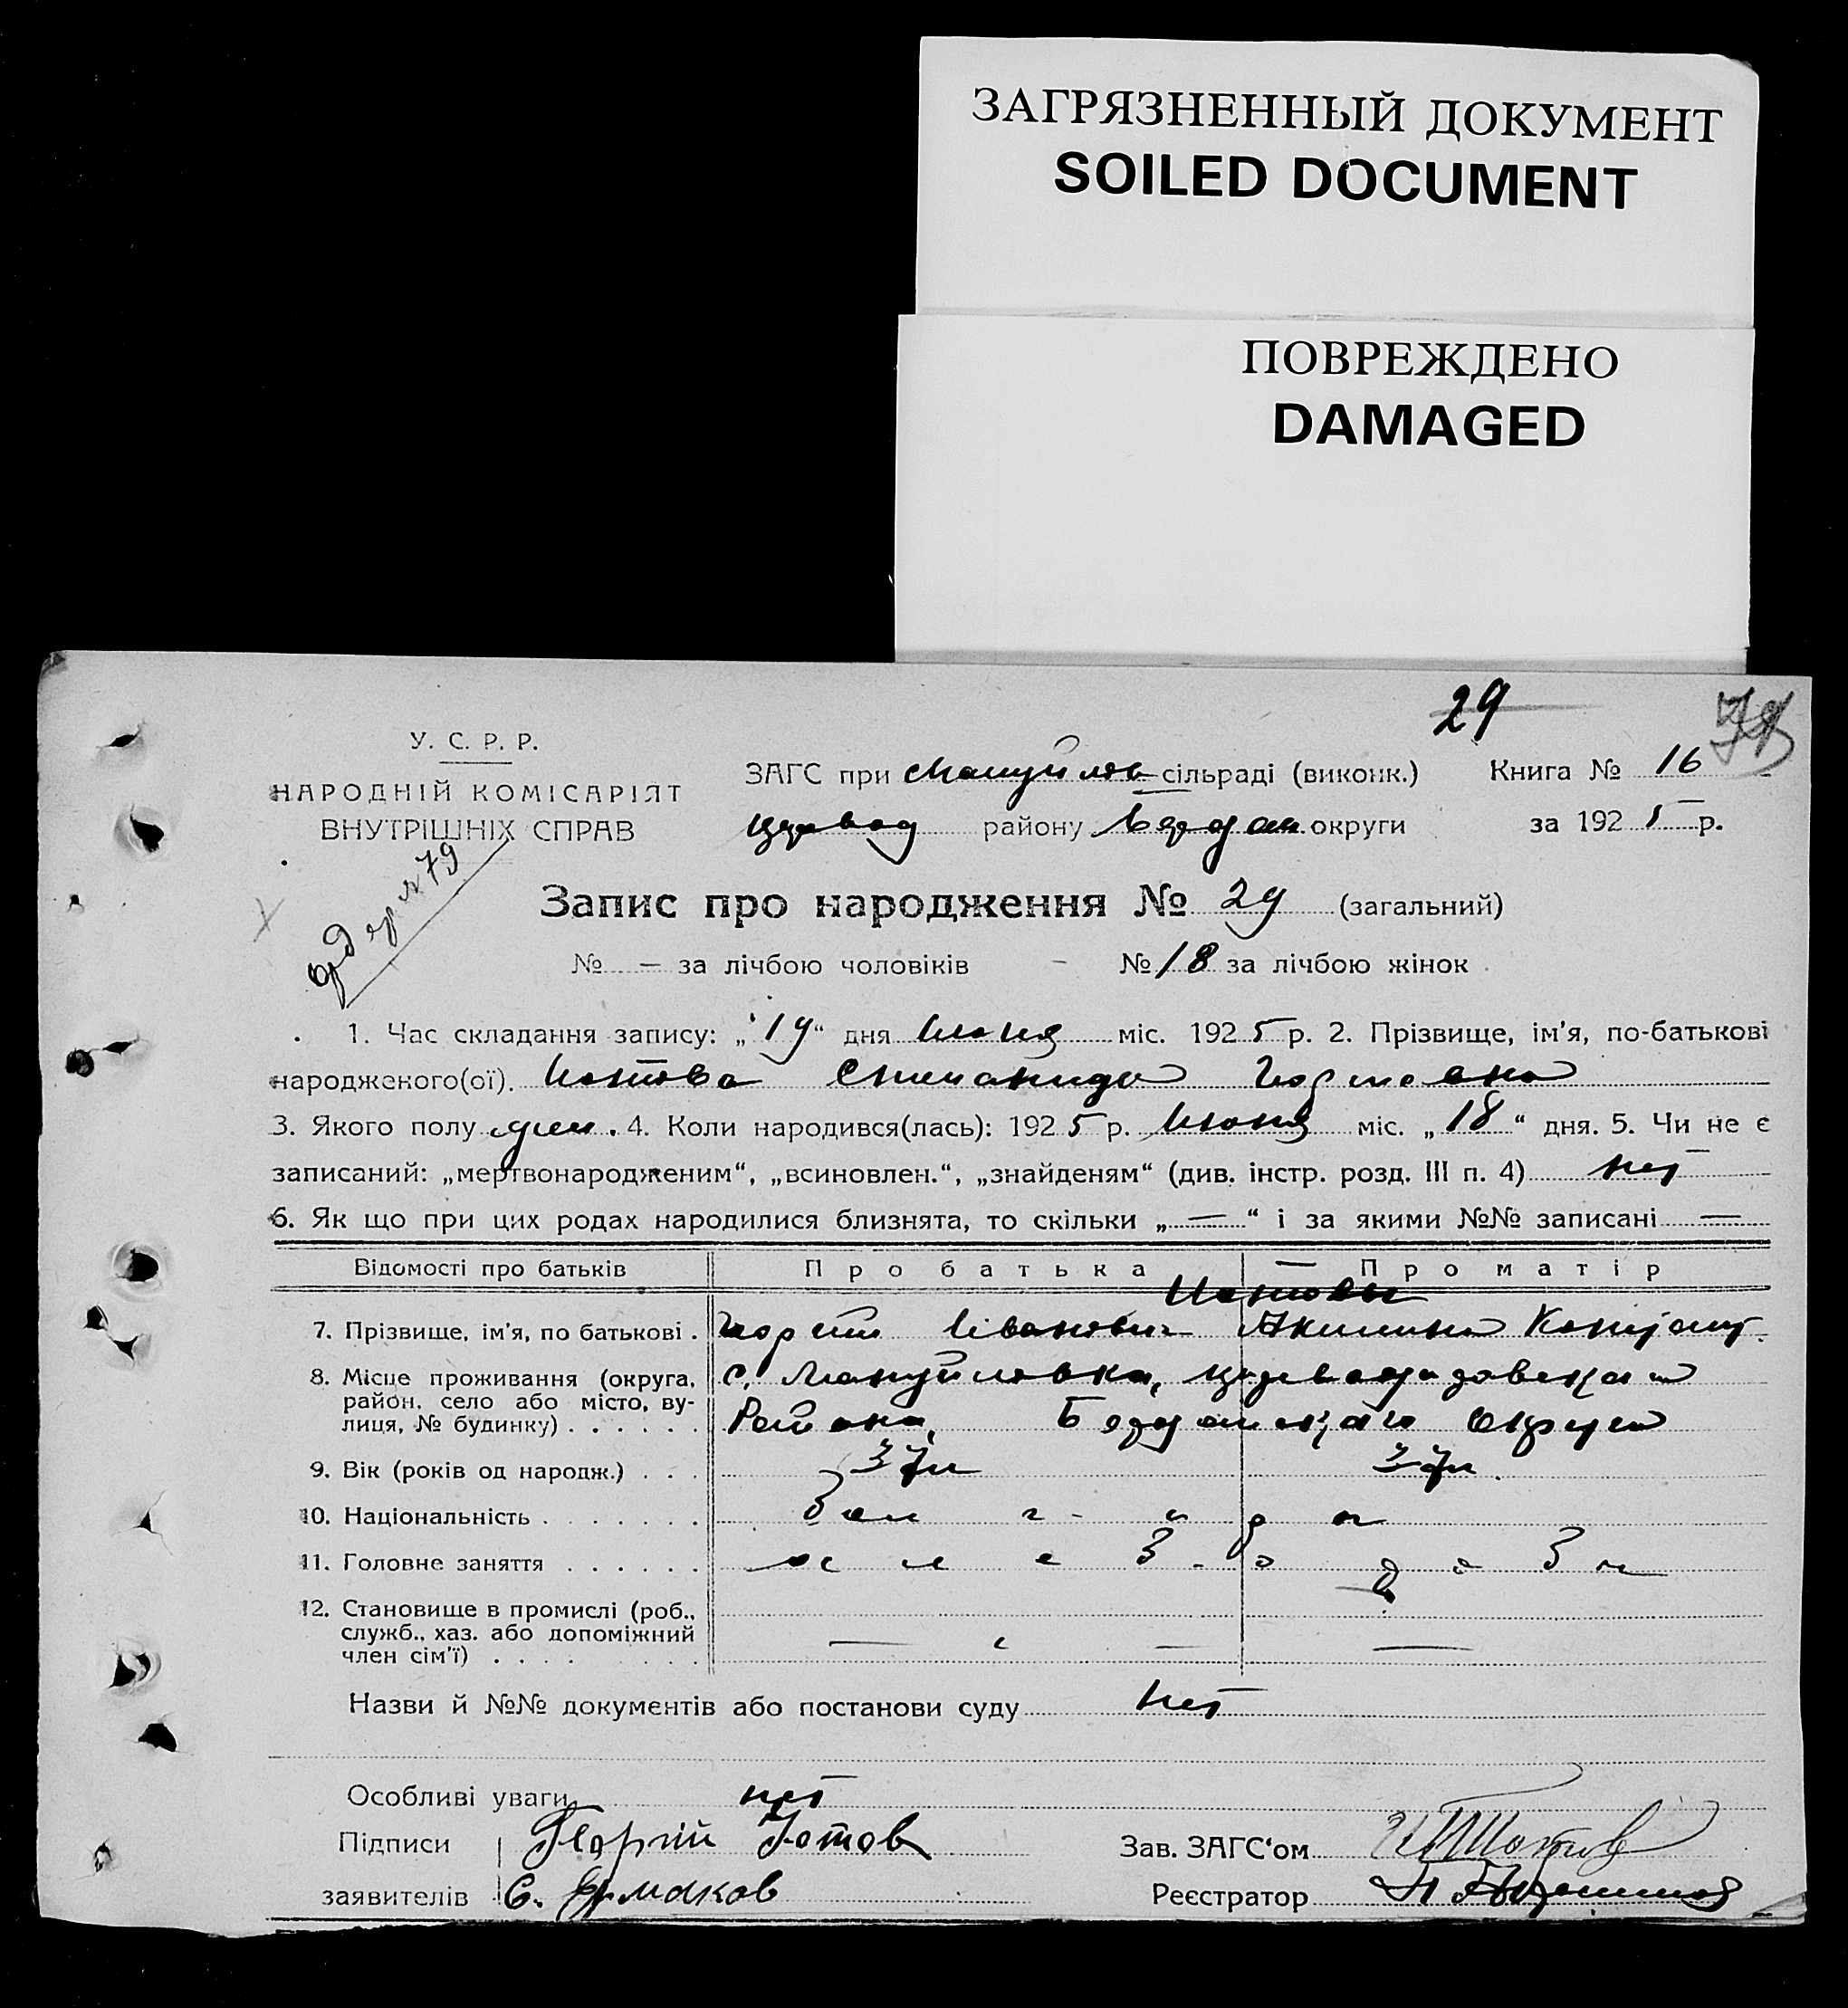 ЗАГРЯЗНЕННЫЙ ДОКУМЕНТ
SOILED DOCUMENT
ПОВРЕЖДЕНО
DAMAGED
29
У. С. Р. Р.
НАРОДНІЙ КОМІСАРІЯТ
ВНУТРІШНІХ СПРАВ
ЗАГС при Мануйлов сільраді (виконк.) Книга № 16
району Бердян округи за 1925 р.
Запис про народження № 29 (загальний)
№ — за лічбою чоловіків № 18 за лічбою жінок
1. Час складання запису: „19“ дня июня міс. 1925 р. 2. Прізвище, ім'я, по-батькові
народженого(ої).
3. Якого полу жен. 4. Коли народився(лась): 1925 р. Июня міс. „18“ дня. 5. Чи не є
записаний: „мертвонародженим“, „всиновлен.“, „знайденям“ (див. інстр. розд. III п. 4) нет
6. Як що при цих родах народилися близнята, то скільки „—“ і за якими №№ записані —
Відомості про батьків Про батька Про матір
7. Прізвище, ім'я, по батькові . Иванович Акилина
8. Місце проживання (округа, с. Мануйловка,
район, село або місто, ву- Района, Бердянскаго округа
лиця, № будинку) . . . . . .
9. Вік (років од народж.) . . . 37 л 37 л.
10. Національність . . . . . . .
11. Головне заняття . . . . . .
12. Становище в промислі (роб.,
служб., хаз. або допоміжний
член сім'ї) . . . . — — —
Назви й №№ документів або постанови суду нет
Особливі уваги нет
Підписи Георгій
заявителів С. Ермаков
Зав. ЗАГС'ом
Реєстратор